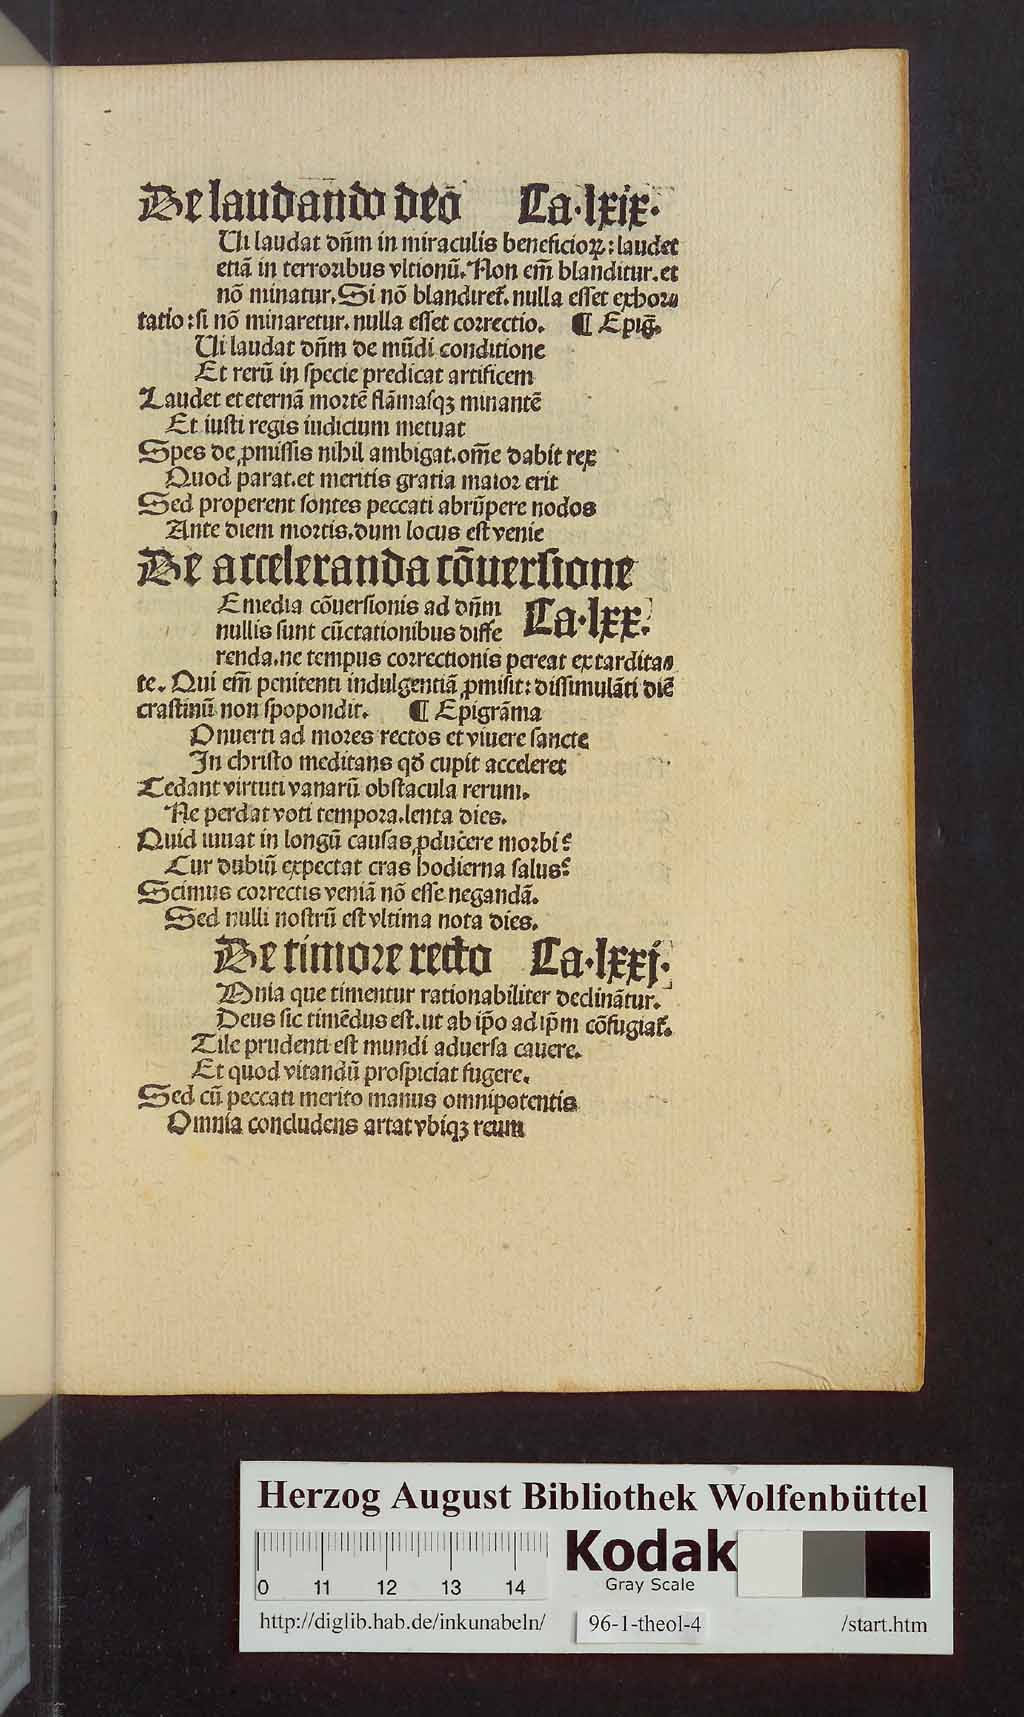 De laudando deo Ca·lxix·
Ui laudat dñm in miraculis beneficioꝝ: laudet
etiã in terroribus vltionũ. Non em̃ blanditur. et
nõ minatur. Si nõ blandiret̃. nulla esset exhor⸗
tatio: si nõ minaretur. nulla esset correctio. ¶ Epig̃.
Ui laudat dñm de mũdi conditione
Et rerũ in specie predicat artificem
Laudet et eternã mortẽ flãmasqꝫ minantẽ
Et iusti regis iudicium metuat
Spes de ꝓmissis nihil ambigat. om̃e dabit rex
Quod parat. et meritis gratia maior erit
Sed properent sontes peccati abrũpere nodos
Ante diem mortis. dum locus est venie
De acceleranda cõuersione
Emedia cõuersionis ad dñm Ca·lxx.
nullis sunt cũctationibus diffe
renda. ne tempus correctionis pereat ex tardita⸗
te. Qui em̃ penitenti indulgentiã ꝓmisit: dissimulãti diẽ
crastinũ non spopondit. ¶ Epigrãma
Onuerti ad mores rectos et viuere sancte
In christo meditans qd̃ cupit acceleret
Cedant virtuti vanarũ obstacula rerum.
Ne perdat voti tempora. lenta dies.
Quid iuuat in longũ causas ꝓducere morbi?
Cur dubiũ expectat cras hodierna salus?
Scimus correctis veniã nõ esse negandã.
Sed nulli nostrũ est vltima nota dies.
De timore recto Ca·lxxj·
Mnia que timentur rationabiliter declinãtur.
Deus sic timẽdus est. ut ab ip̃o ad ip̃m cõfugiat̃.
Tile prudenti est mundi aduersa cauere.
Et quod vitandũ prospiciat fugere.
Sed cũ peccati merito manus omnipotentis
Omnia concludens artat vbiqꝫ reum
Herzog August Bibliothek Wolfenbüttel
0 11 12 13 14
Kodak
Gray Scale
http://diglib.hab.de/inkunabeln/ 96-1-theol-4 /start.htm